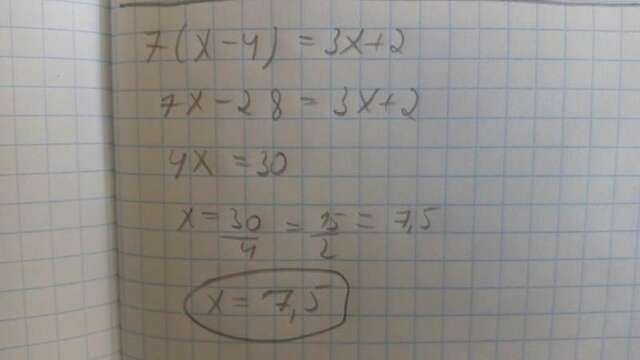 7(x-4) = 3x+2
7x-28 = 3x+2
4x = 30
x = 30/4 = 15/2 = 7,5
x = 7,5